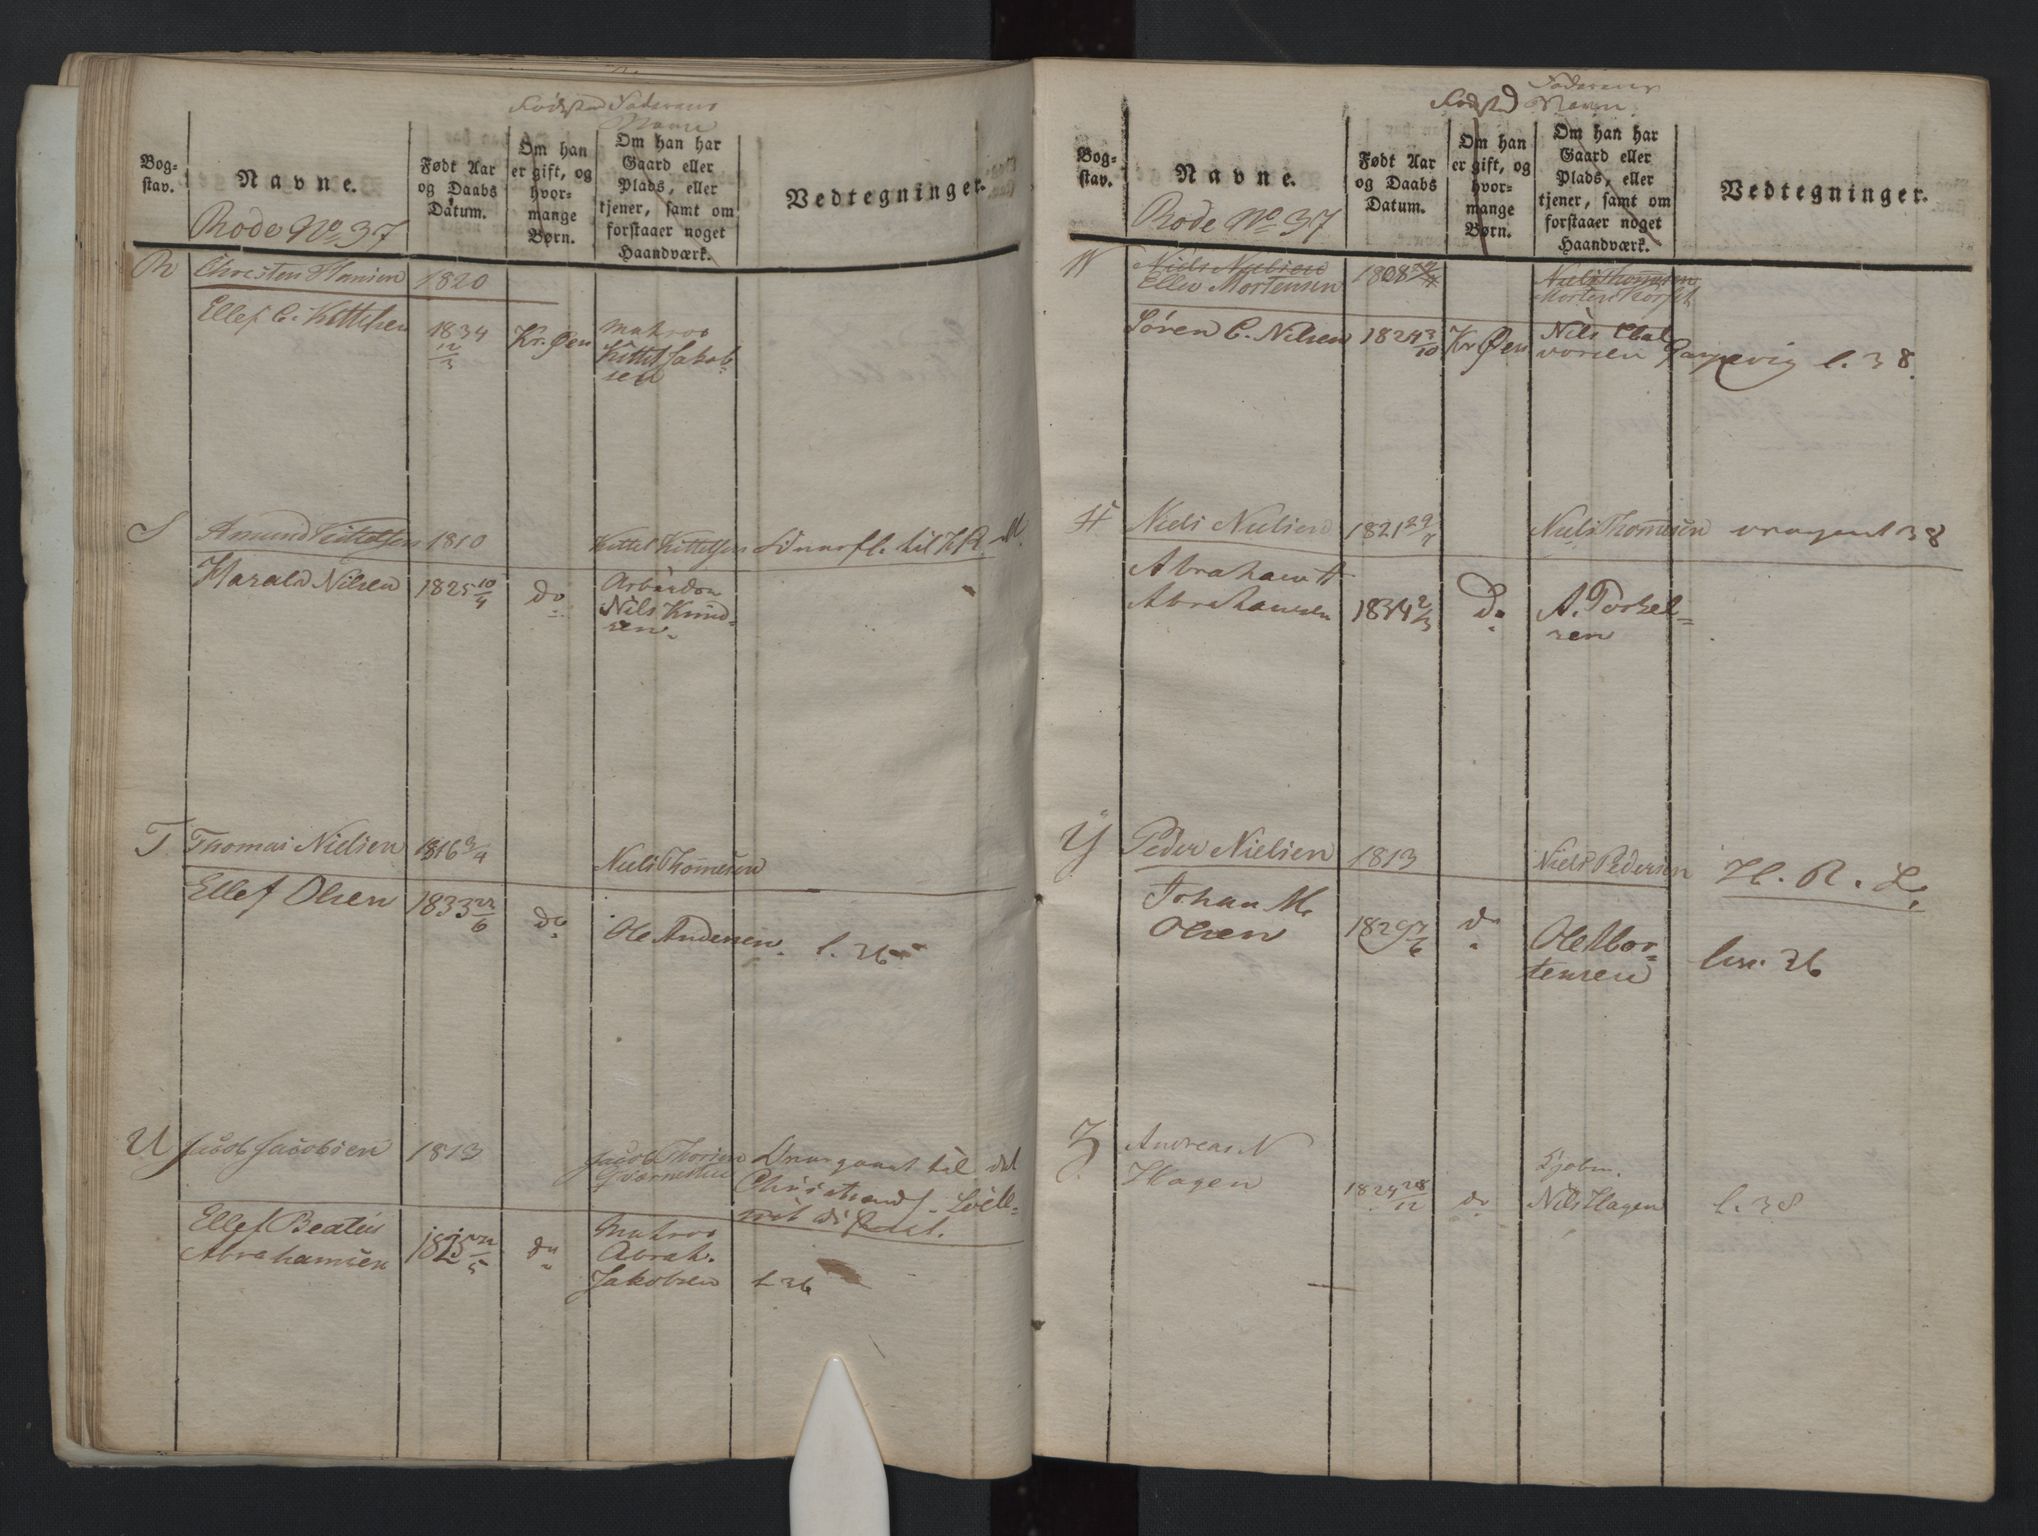 Fødsted Faderens
Navn
Bog-
stav.
Navne.
Født Aar
og Daabs
Datum.
Om han
er gift, og
hvor-
mange
Børn.
Om han har
Gaard eller
Plads, eller
tjener, samt om
forstaaer noget
Haandværk.
Vedtegninger.
Rode No 37
R Christen Hansen 1820
Ellef C. Kittelsen 1834 12/3 Kr. Øen Matros
Kittel Jakob-
sen
S Amund Kittelsen 1810 Kittel Kittelsen til H. R. M.
Harald Nilsen 1825 10/4 do Nils Knud-
sen
T Thomas Nielsen 1816 9/4 Niels Thommesen
Ellef Olsen 1833 22/6 do Ole Andersen l. 36
U Jacob Jacobsen 1813 Jacob Thorsen til det
Ellef Beatus
Abrahamsen 1825 22/5 do Matros
Abrah.
Jakobsen l. 36
Fødsted Faderens
Navn
Bog-
stav.
Navne.
Født Aar
og Daabs
Datum.
Om han
er gift, og
hvor-
mange
Børn.
Om han har
Gaard eller
Plads, eller
tjener, samt om
forstaaer noget
Haandværk.
Vedtegninger.
Rode No 37
W Niels Nielsen 1808 Niels Thommesen
Ellev Mortensen Morten
Søren C. Nilsen 1824 3/10 Kr Øen Nils Hal
vorsen l. 38.
H Niels Nielsen 1821 Niels Thommesen vragent 38
Abraham H
Abrahamsen 1834 2/3 do A. Torkel-
sen
Y Peder Nielsen 1813 Niels Pedersen H. R. L.
Johan M.
Olsen 1829 do Ole Mor-
tensen 36
Z Andreas N
Hagen 1824 28/12 do
Nils Hagen l. 38